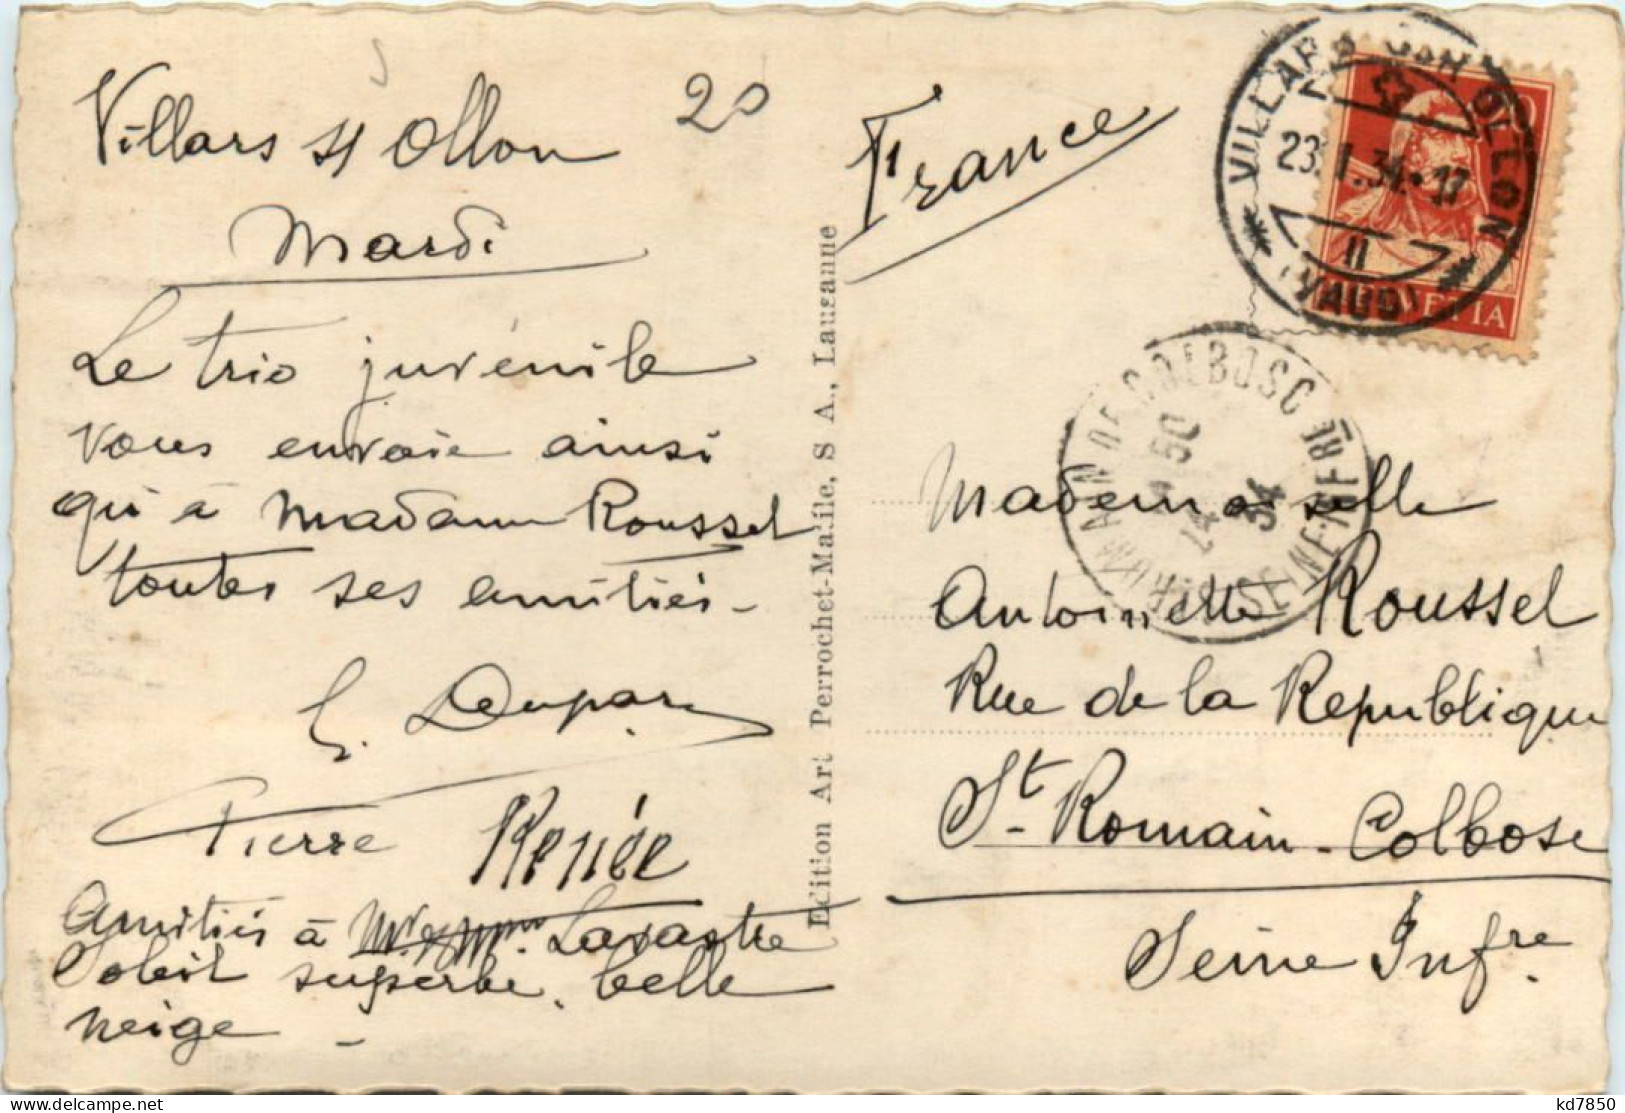 Villars s/ Ollon
20
Mardi
Le trio juvénile
vous envoie ainsi
qu'à Madame Roussel
toutes ses amitiés -
G.
Pierre Renée
Amitiés à Mr et Mme Lavastre
Soleil superbe, belle
neige -
Edition Art Perrochet-Matile, S A., Lausanne
France
VILLARS OLLON
23.I.34.17
II
(VAUD)
HELVETIA
ST ROMAIN DE COLBOSC
SEINE-INFRE
14 50
24
34
Mademoiselle
Antoinette Roussel
Rue de la République
St Romain-Colbosc
Seine Infre
kd7850